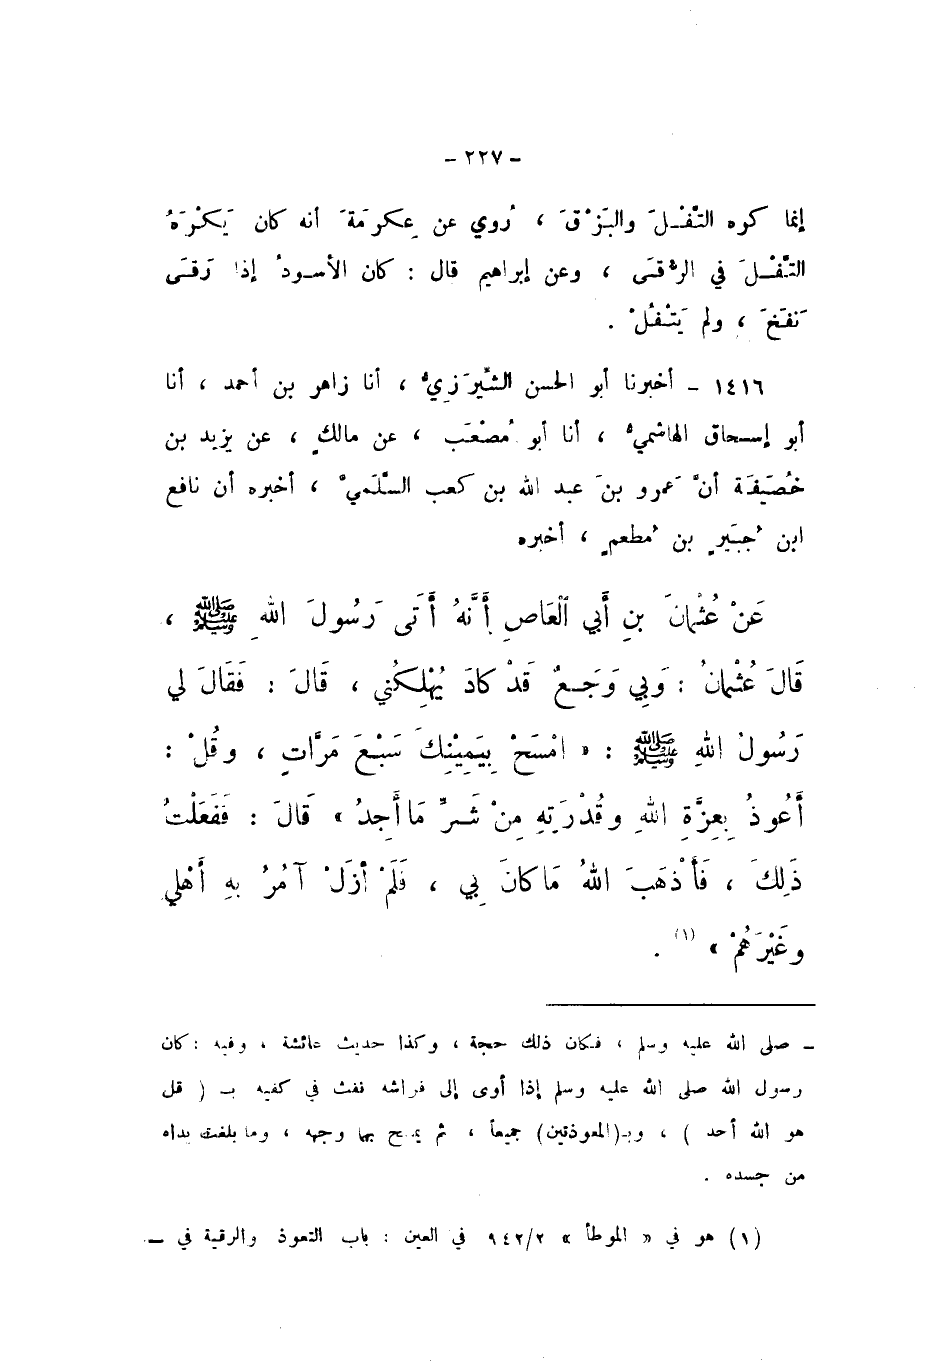 - ٢٢٧ -
إنما كره التَّفْـلَ والبَزْقَ ، رُوي عن عِكرِمَةَ أنه كان يَكْرَهُ
التَّفْـلَ في الرُّقَى ، وعن إبراهيم قال : كان الأسودُ إذا رَقَى
نَفَخَ ، ولم يَتْفُلْ .
١٤١٦ - أخبرنا أبو الحسن الشِّيرَزِيُّ ، أنا زاهر بن أحمد ، أنا
أبو إسحاق الهاشميُّ ، أنا أبو مُصْعَب ، عن مالكٍ ، عن يزيد بن
خُصَيفَة أنَّ عَمرو بنَ عبد الله بن كعب السَّلَميَّ ، أخبره أن نافع
ابن جُبَيرٍ بن مُطعمٍ ، أخبره
عَنْ عُثْمانَ بنِ أَبي العَاصِ أَنَّهُ أَتَى رَسُولَ اللهِ ﷺ ،
قَالَ عُثْمانُ : وَبِي وَجَـعٌ قَدْ كادَ يُهْلِكُني ، قَالَ : فَقَالَ لي
رَسُولُ اللهِ ﷺ : « امْسَحْ بِيَمِيْنِكَ سَبْعَ مَرَّاتٍ ، وقُلْ :
أَعُوذُ بِعِزَّةِ اللهِ وقُدْرَتِهِ مِنْ شَـرِّ مَا أَجِدُ » قَالَ : فَفَعَلْتُ
ذَلِكَ ، فَأَذْهَبَ اللهُ مَا كانَ بِي ، فَلَمْ أزَلْ آمُرُ بِهِ أَهْلي
وغَيْرَهُمْ » (١) .
ـ صلى الله عليه وسلم ، فكان ذلك حجة ، وكذا حديث عائشة ، وفيه : كان
رسول الله صلى الله عليه وسلم إذا أوى إلى فراشه نفث في كفيه بـ ( قل
هو الله أحد ) ، وبـ(المعوذتين) جميعاً ، ثم يمسح بها وجهه ، وما بلغت يداه
من جسده .
(١) هو في « الموطأ » ٩٤٢/٢ في العين : باب التعوذ والرقية في ـ